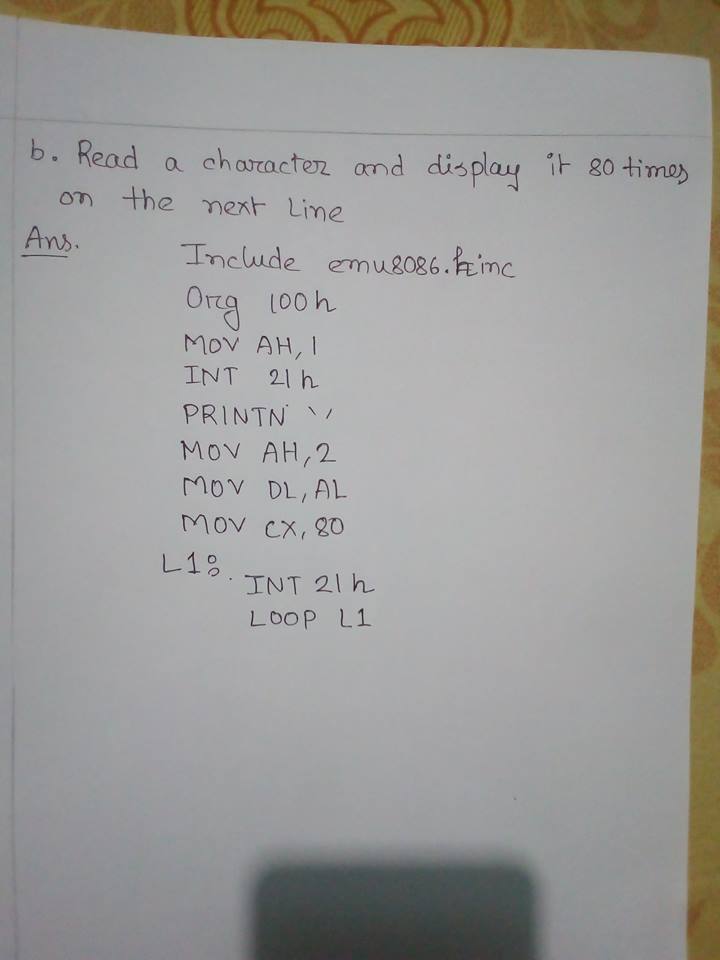 b. Read a character and display it 80 times
on the next Line
Ans.
Include emu8086.inc
Org 100h
MOV AH, 1
INT 21h
PRINTN ' '
MOV AH, 2
MOV DL, AL
MOV CX, 80
L1:
INT 21h
LOOP L1